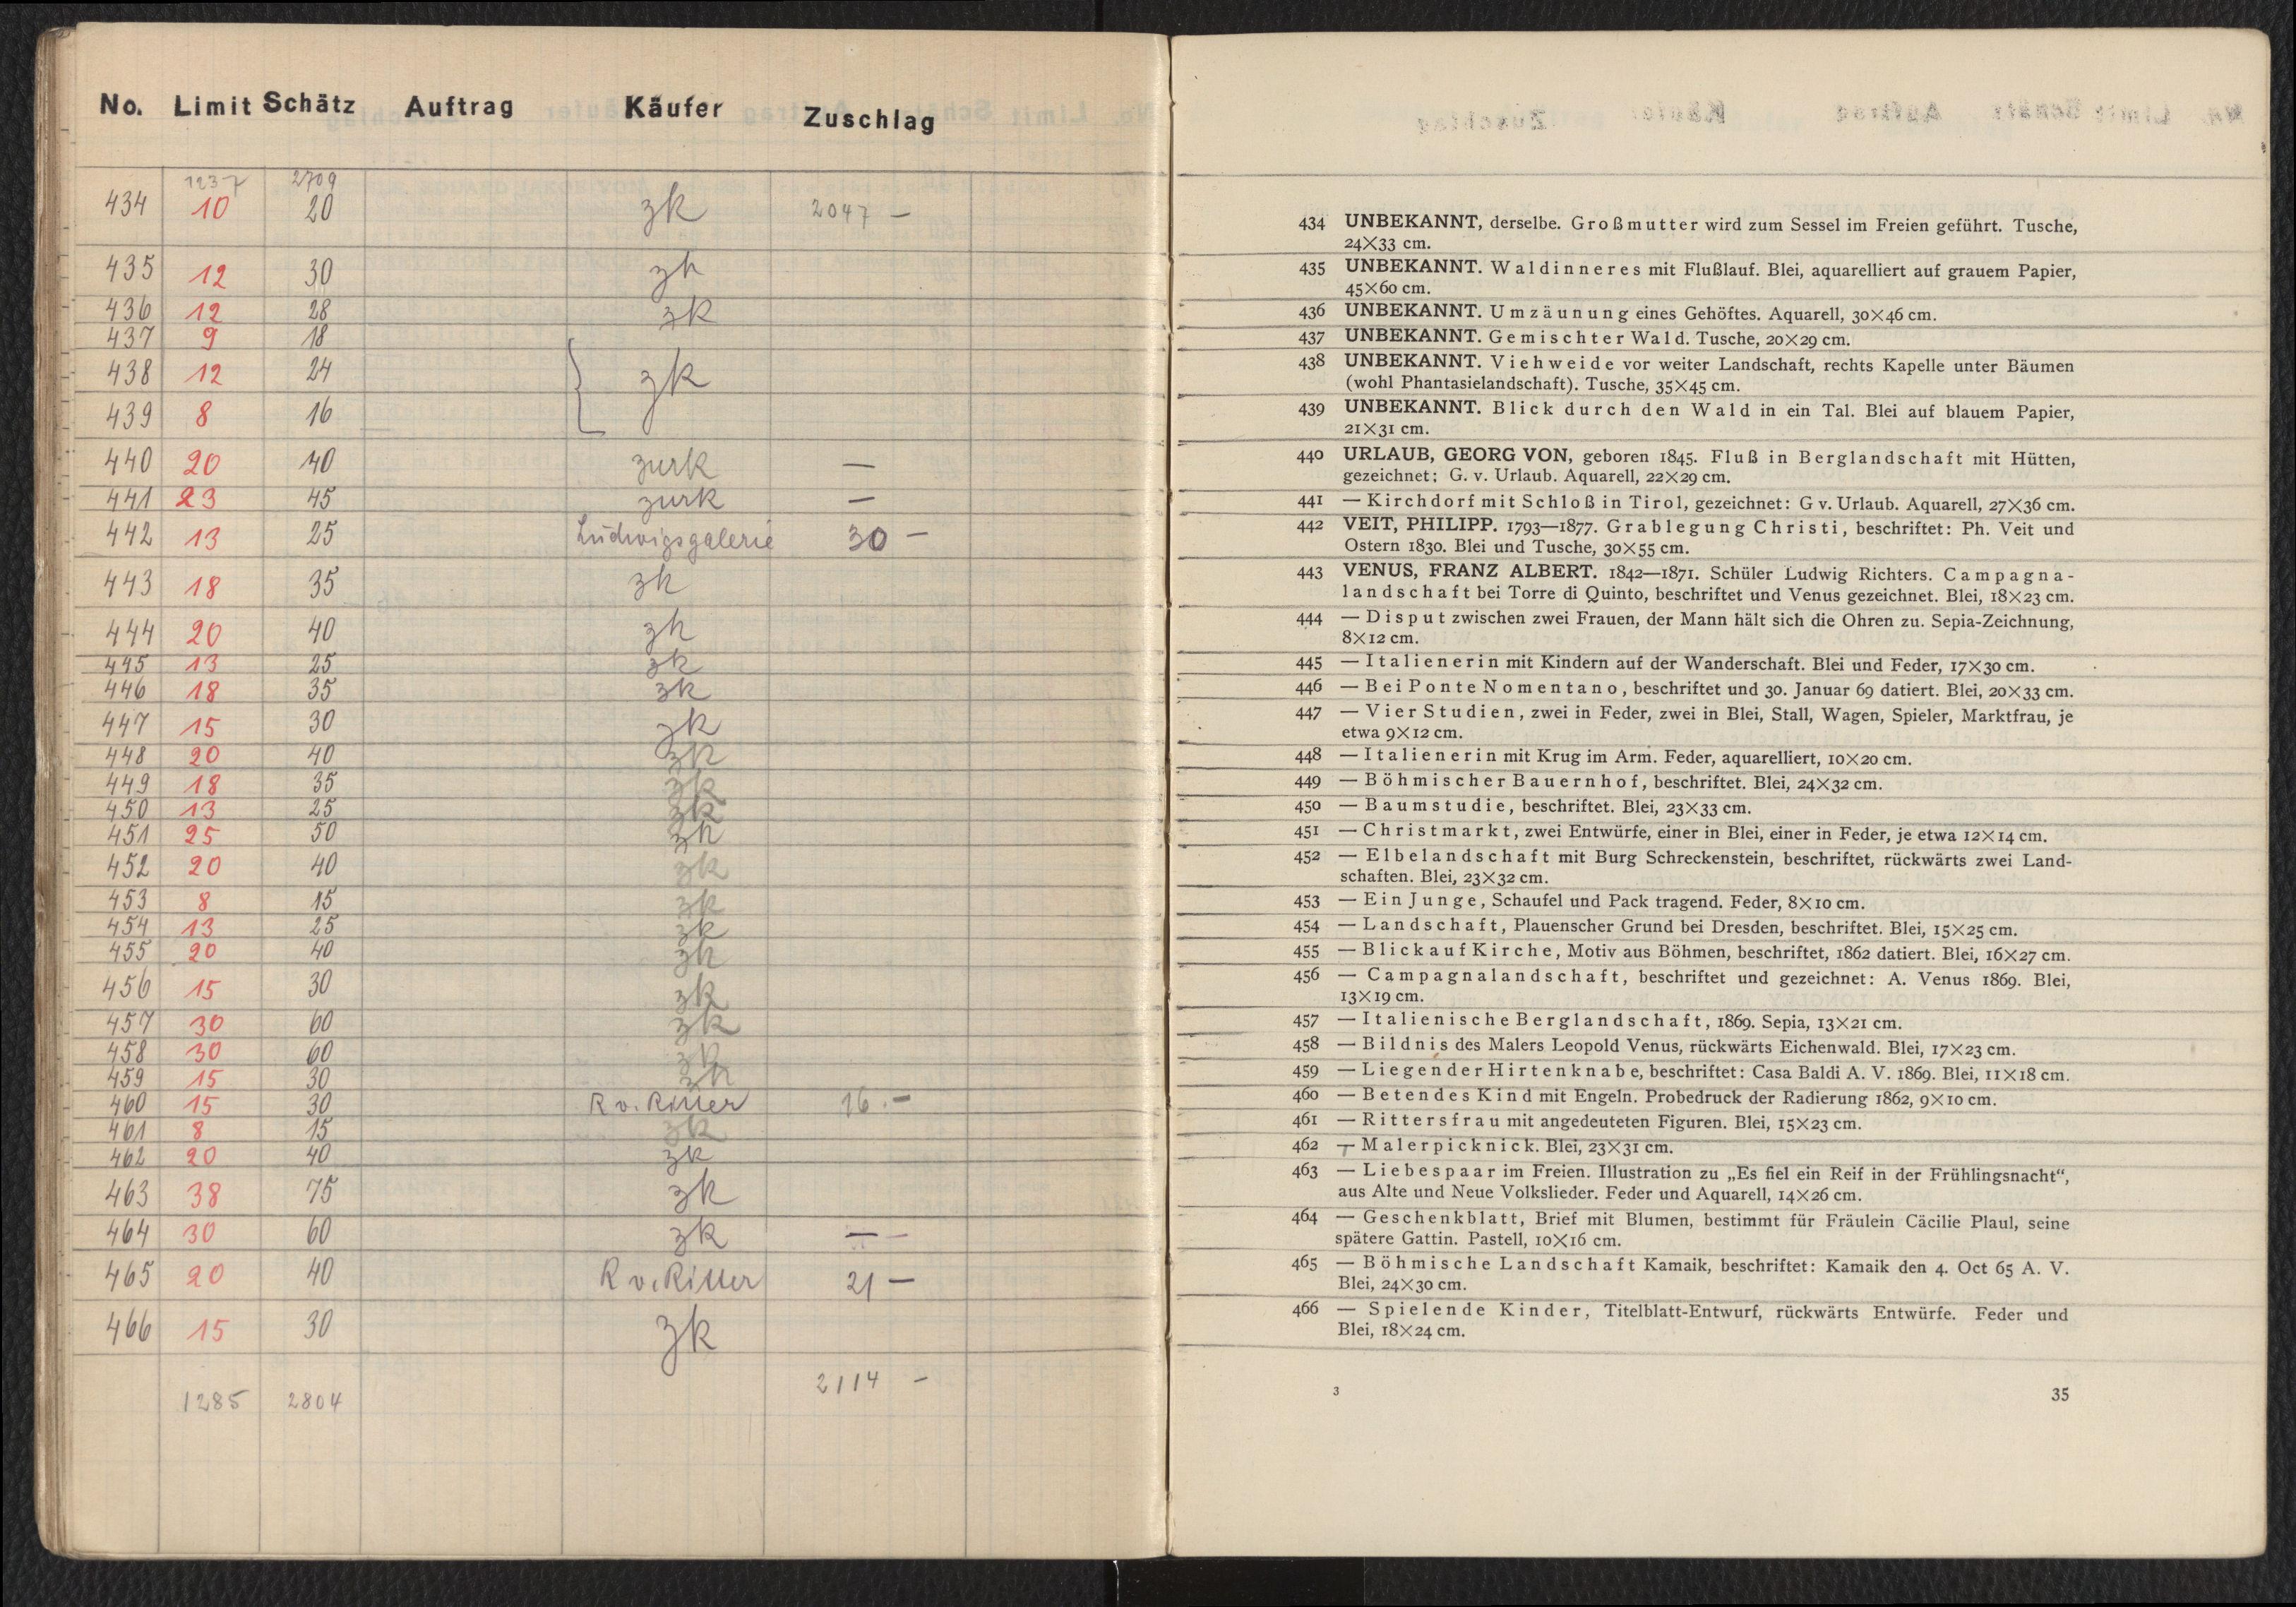 No. Limit Schätz Auftrag Käufer Zuschlag
1237 2709
434 10 20 zk 2047 —
435 12 30 zk
436 12 28 zk
437 9 18
438 12 24 zk
439 8 16
440 20 40 zurk —
441 23 45 zurk —
442 13 25 Ludwigsgalerie 30 —
443 18 35 zk
444 20 40 zk
445 13 25 zk
446 18 35 zk
447 15 30 zk
448 20 40 zk
449 18 35 zk
450 13 25 zk
451 25 50 zk
452 20 40 zk
453 8 15 zk
454 13 25 zk
455 20 40 zk
456 15 30 zk
457 30 60 zk
458 30 60 zk
459 15 30 zk
460 15 30 R v. Ritter 16.—
461 8 15 zk
462 20 40 zk
463 38 75 zk
464 30 60 zk —
465 20 40 R v. Ritter 21 —
466 15 30 zk
1285 2804 2114 —
434 UNBEKANNT, derselbe. Großmutter wird zum Sessel im Freien geführt. Tusche,
24×33 cm.
435 UNBEKANNT. Waldinneres mit Flußlauf. Blei, aquarelliert auf grauem Papier,
45×60 cm.
436 UNBEKANNT. Umzäunung eines Gehöftes. Aquarell, 30×46 cm.
437 UNBEKANNT. Gemischter Wald. Tusche, 20×29 cm.
438 UNBEKANNT. Viehweide vor weiter Landschaft, rechts Kapelle unter Bäumen
(wohl Phantasielandschaft). Tusche, 35×45 cm.
439 UNBEKANNT. Blick durch den Wald in ein Tal. Blei auf blauem Papier,
21×31 cm.
440 URLAUB, GEORG VON, geboren 1845. Fluß in Berglandschaft mit Hütten,
gezeichnet: G. v. Urlaub. Aquarell, 22×29 cm.
441 — Kirchdorf mit Schloß in Tirol, gezeichnet: G v. Urlaub. Aquarell, 27×36 cm.
442 VEIT, PHILIPP. 1793—1877. Grablegung Christi, beschriftet: Ph. Veit und
Ostern 1830. Blei und Tusche, 30×55 cm.
443 VENUS, FRANZ ALBERT. 1842—1871. Schüler Ludwig Richters. Campagna-
landschaft bei Torre di Quinto, beschriftet und Venus gezeichnet. Blei, 18×23 cm.
444 — Disput zwischen zwei Frauen, der Mann hält sich die Ohren zu. Sepia-Zeichnung,
8×12 cm.
445 — Italienerin mit Kindern auf der Wanderschaft. Blei und Feder, 17×30 cm.
446 — Bei Ponte Nomentano, beschriftet und 30. Januar 69 datiert. Blei, 20×33 cm.
447 — Vier Studien, zwei in Feder, zwei in Blei, Stall, Wagen, Spieler, Marktfrau, je
etwa 9×12 cm.
448 — Italienerin mit Krug im Arm. Feder, aquarelliert, 10×20 cm.
449 — Böhmischer Bauernhof, beschriftet. Blei, 24×32 cm.
450 — Baumstudie, beschriftet. Blei, 23×33 cm.
451 — Christmarkt, zwei Entwürfe, einer in Blei, einer in Feder, je etwa 12×14 cm.
452 — Elbelandschaft mit Burg Schreckenstein, beschriftet, rückwärts zwei Land-
schaften. Blei, 23×32 cm.
453 — Ein Junge, Schaufel und Pack tragend. Feder, 8×10 cm.
454 — Landschaft, Plauenscher Grund bei Dresden, beschriftet. Blei, 15×25 cm.
455 — Blick auf Kirche, Motiv aus Böhmen, beschriftet, 1862 datiert. Blei, 16×27 cm.
456 — Campagnalandschaft, beschriftet und gezeichnet: A. Venus 1869. Blei,
13×19 cm.
457 — Italienische Berglandschaft, 1869. Sepia, 13×21 cm.
458 — Bildnis des Malers Leopold Venus, rückwärts Eichenwald. Blei, 17×23 cm.
459 — Liegender Hirtenknabe, beschriftet: Casa Baldi A. V. 1869. Blei, 11×18 cm.
460 — Betendes Kind mit Engeln. Probedruck der Radierung 1862, 9×10 cm.
461 — Rittersfrau mit angedeuteten Figuren. Blei, 15×23 cm.
462 — Malerpicknick. Blei, 23×31 cm.
463 — Liebespaar im Freien. Illustration zu „Es fiel ein Reif in der Frühlingsnacht“,
aus Alte und Neue Volkslieder. Feder und Aquarell, 14×26 cm.
464 — Geschenkblatt, Brief mit Blumen, bestimmt für Fräulein Cäcilie Plaul, seine
spätere Gattin. Pastell, 10×16 cm.
465 — Böhmische Landschaft Kamaik, beschriftet: Kamaik den 4. Oct 65 A. V.
Blei, 24×30 cm.
466 — Spielende Kinder, Titelblatt-Entwurf, rückwärts Entwürfe. Feder und
Blei, 18×24 cm.
3 35